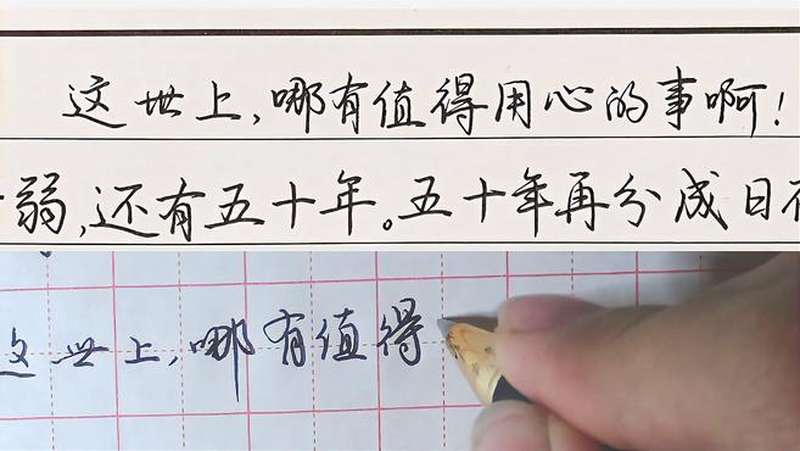 这世上,哪有值得用心的事啊!
弱,还有五十年。五十年再分成日
这世上,哪有值得